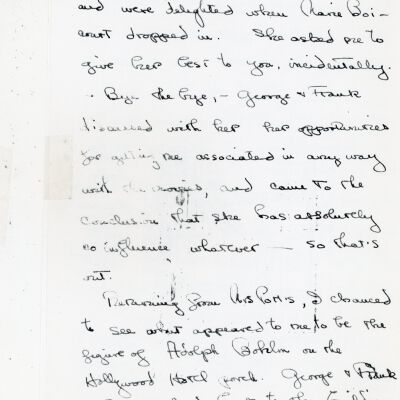 and were delighted when Marie Boi-
court dropped in. She asked me to
give her best to you, incidentally.
. Bye the bye, - George & Frank
discussed with her her opportunities
for getting me associated in any way
with the movies, and came to the
conclusion that she has absolutely
no influence whatever — so that's
out.
Returning from Mrs Potts, I chanced
to see what appeared to me to be the
figure of Adolph Bohlm on the
Hollywood Hotel porch. George & Frank